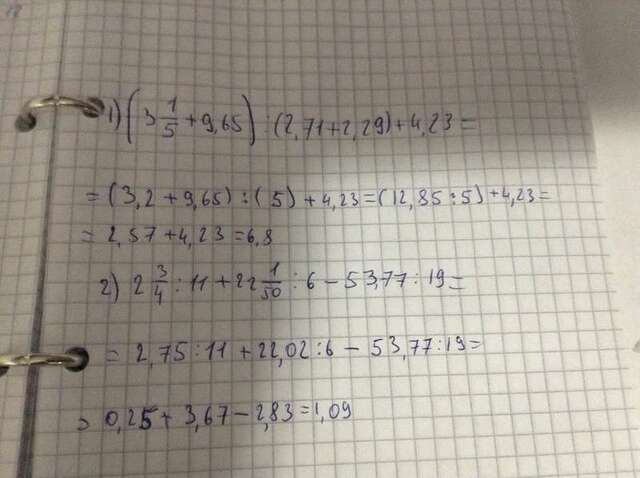 1) (3 1/5 + 9,65) : (2,71+2,29)+4,23=
= (3,2 + 9,65) : (5) + 4,23=(12,85 : 5) + 4,23=
= 2,57 + 4,23 = 6,8
2) 2 3/4 : 11 + 22 1/50 : 6 - 53,77 : 19=
= 2,75 : 11 + 22,02 : 6 - 53,77 : 19=
= 0,25 + 3,67 - 2,83 = 1,09